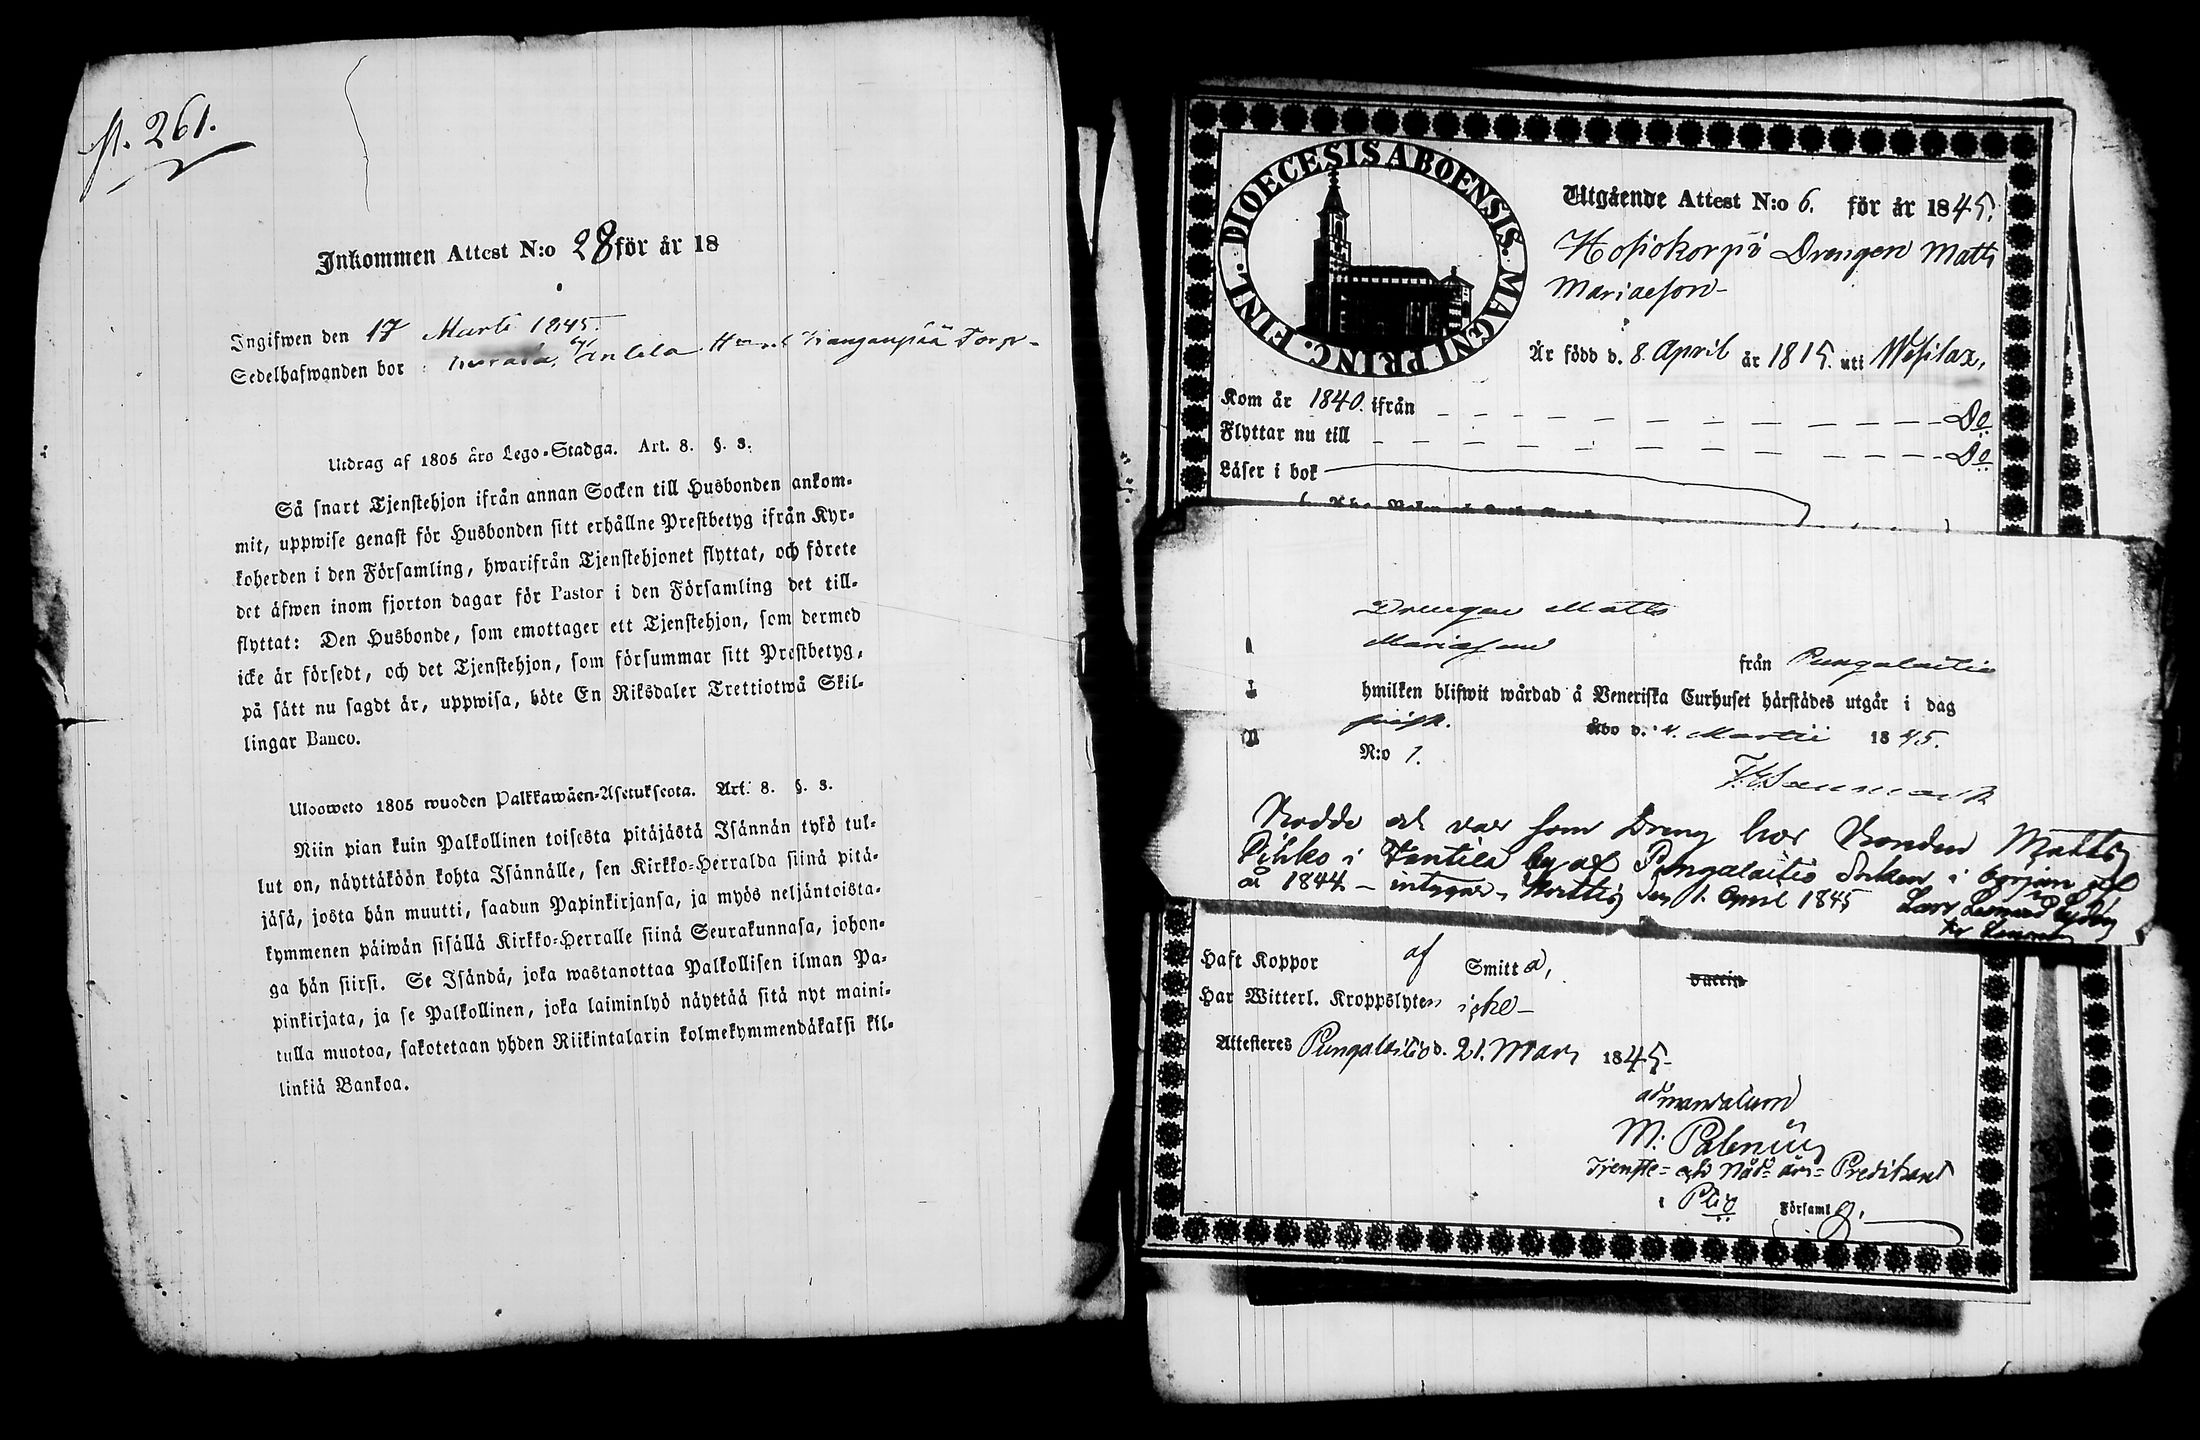 fl. 261.
Inkommen Attest N:o 28 för år 18
Ingifwen den 17 Marti 1845.
Sedelhafwanden bor Anlela Torp
Utdrag af 1805 års Lego-Stadga. Art. 8. §. 3.
Så snart Tjenstehjon ifrån annan Socken till Husbonden ankom-
mit, uppwise genast för Husbonden sitt erhållne Prestbetyg ifrån Kyr-
koherden i den Församling, hwarifrån Tjenstehjonet flyttat, och förete
det äfwen inom fjorton dagar för Pastor i den Församling det till-
flyttat: Den Husbonde, som emottager ett Tjenstehjon, som dermed
icke är försedt, och det Tjenstehjon, som försummar sitt Prestbetyg,
på sätt nu sagdt är, uppwisa, böte En Riksdaler Trettiotwå Skil-
lingar Banco.
Ulosweto 1805 wuoden Palkkawäen-Asetuksesta. Art. 8. §. 3.
Niin pian kuin Palkollinen toisesta pitäjästä Isännän tykö tul-
lut on, näyttäköön kohta Isännälle, sen Kirkko-Herralda siinä pitä-
jäsä, josta hän muutti, saadun Papinkirjansa, ja myös neljäntoista-
kymmenen päiwän sisällä Kirkko-Herralle siinä Seurakunnasa, johon-
ga hän siirsi. Se Isändä, joka wastanottaa Palkollisen ilman Pa-
pinkirjata, ja se Palkollinen, joka laiminlyö näyttää sitä nyt maini-
tulla muotoa, sakotetaan yhden Riikintalarin kolmekymmendäkaksi kil-
linkiä Bankoa.
DIOECESIS ABOENSIS. MAGNI PRINC. FINL.
Utgående Attest N:o 6. för år 1845.
Hosiokorpi Drengen Matts
Mariaeson
Är född d. 8 April år 1815. uti Wesilax,
Kom år 1840. ifrån Do
Flyttar nu till Do
Läser i bok
Drengen Matts
Mariæson
från Pungalaitio
hwilken blifwit wårdad å Veneriska Curhuset härstädes utgår i dag
frisk. Åbo d. 4. Martii 1845.
N:o 1.
Bodde och var som Dreng hos Bonden Matts
Pihko i Jentila by af Pungalaitio Socken i början af
år 1844 – intygar, Mortis den 1. April 1845 Lars Leonard
Haft Koppor af Smitta, vaccin
Har Witterl. Kroppslyten icke
Attesteres Pungalaitio d. 21. Mars 1845
ad mandatum
M: Palenius
Tjenste- och Nåd-års-Predikant
i Ptio Församlg.